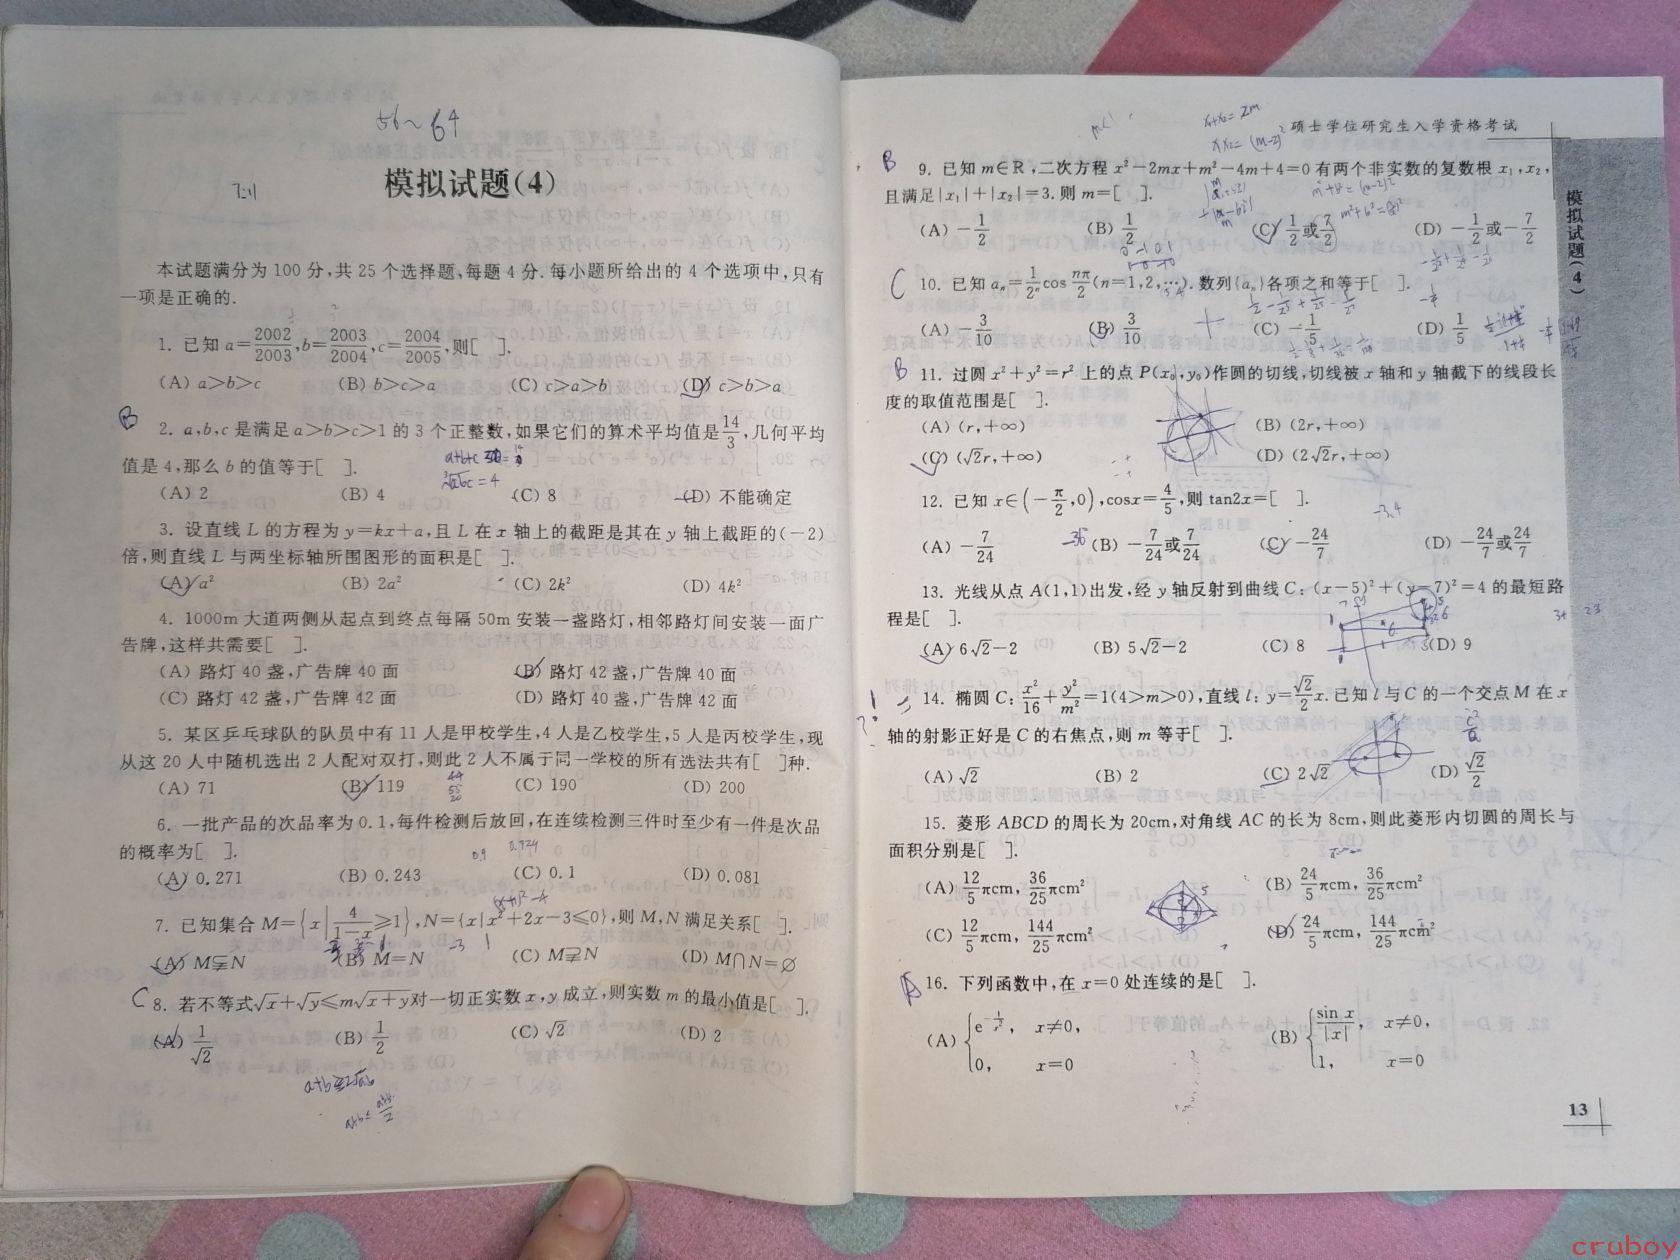 56~64
7:11
模拟试题(4)
本试题满分为 100 分,共 25 个选择题,每题 4 分.每小题所给出的 4 个选项中,只有
一项是正确的.
1. 已知 a=2002/2003,b=2003/2004,c=2004/2005,则[ ].
(A) a>b>c (B) b>c>a (C) c>a>b (D) c>b>a
B
2. a,b,c 是满足 a>b>c>1 的 3 个正整数,如果它们的算术平均值是14/3,几何平均
值是 4,那么 b 的值等于[ ].
(A) 2 (B) 4 (C) 8 (D) 不能确定
3. 设直线 L 的方程为 y=kx+a,且 L 在 x 轴上的截距是其在 y 轴上截距的(-2)
倍,则直线 L 与两坐标轴所围图形的面积是[ ].
(A) a² (B) 2a² (C) 2k² (D) 4k²
4. 1000m 大道两侧从起点到终点每隔 50m 安装一盏路灯,相邻路灯间安装一面广
告牌,这样共需要[ ].
(A) 路灯 40 盏,广告牌 40 面 (B) 路灯 42 盏,广告牌 40 面
(C) 路灯 42 盏,广告牌 42 面 (D) 路灯 40 盏,广告牌 42 面
5. 某区乒乓球队的队员中有 11 人是甲校学生,4 人是乙校学生,5 人是丙校学生,现
从这 20 人中随机选出 2 人配对双打,则此 2 人不属于同一学校的所有选法共有[ ]种.
(A) 71 (B) 119 (C) 190 (D) 200
44
55
20
6. 一批产品的次品率为 0.1,每件检测后放回,在连续检测三件时至少有一件是次品
的概率为[ ].
0.9 0.729
(A) 0.271 (B) 0.243 (C) 0.1 (D) 0.081
(x+1)²-4
7. 已知集合 M={x|4/(1-x)≥1},N={x|x²+2x-3≤0},则 M,N 满足关系[ ].
-3 1
(A) M⫋N (B) M=N (C) M⫌N (D) M∩N=∅
C
8. 若不等式√x+√y≤m√(x+y)对一切正实数 x,y 成立,则实数 m 的最小值是[ ].
(A) 1/√2 (B) 1/2 (C) √2 (D) 2
a+b≥2√ab
硕士学位研究生入学资格考试
模拟试题(4)
x₁+x₂=2m
x₁x₂=(m-2)²
B
9. 已知 m∈R,二次方程 x²-2mx+m²-4m+4=0 有两个非实数的复数根 x₁,x₂,
且满足|x₁|+|x₂|=3.则 m=[ ].
(A) -1/2 (B) 1/2 (C) 1/2或7/2 (D) -1/2或-7/2
C
10. 已知 aₙ=1/2ⁿ cos nπ/2 (n=1,2,…).数列{aₙ}各项之和等于[ ].
(A) -3/10 (B) 3/10 (C) -1/5 (D) 1/5
B
11. 过圆 x²+y²=r² 上的点 P(x₀,y₀)作圆的切线,切线被 x 轴和 y 轴截下的线段长
度的取值范围是[ ].
(A) (r,+∞) (B) (2r,+∞)
(C) (√2r,+∞) (D) (2√2r,+∞)
12. 已知 x∈(-π/2,0),cosx=4/5,则 tan2x=[ ].
(A) -7/24 (B) -7/24或7/24 (C) -24/7 (D) -24/7或24/7
13. 光线从点 A(1,1)出发,经 y 轴反射到曲线 C: (x-5)²+(y-7)²=4 的最短路
程是[ ].
(A) 6√2-2 (B) 5√2-2 (C) 8 (D) 9
14. 椭圆 C: x²/16+y²/m²=1(4>m>0),直线 l: y=√2/2 x.已知 l 与 C 的一个交点 M 在 x
轴的射影正好是 C 的右焦点,则 m 等于[ ].
(A) √2 (B) 2 (C) 2√2 (D) √2/2
15. 菱形 ABCD 的周长为 20cm,对角线 AC 的长为 8cm,则此菱形内切圆的周长与
面积分别是[ ].
(A) 12/5 πcm, 36/25 πcm² (B) 24/5 πcm, 36/25 πcm²
(C) 12/5 πcm, 144/25 πcm² (D) 24/5 πcm, 144/25 πcm²
16. 下列函数中,在 x=0 处连续的是[ ].
(A) { e^(-1/x²), x≠0, (B) { sin x/|x|, x≠0,
0, x=0 1, x=0
13
cruboy